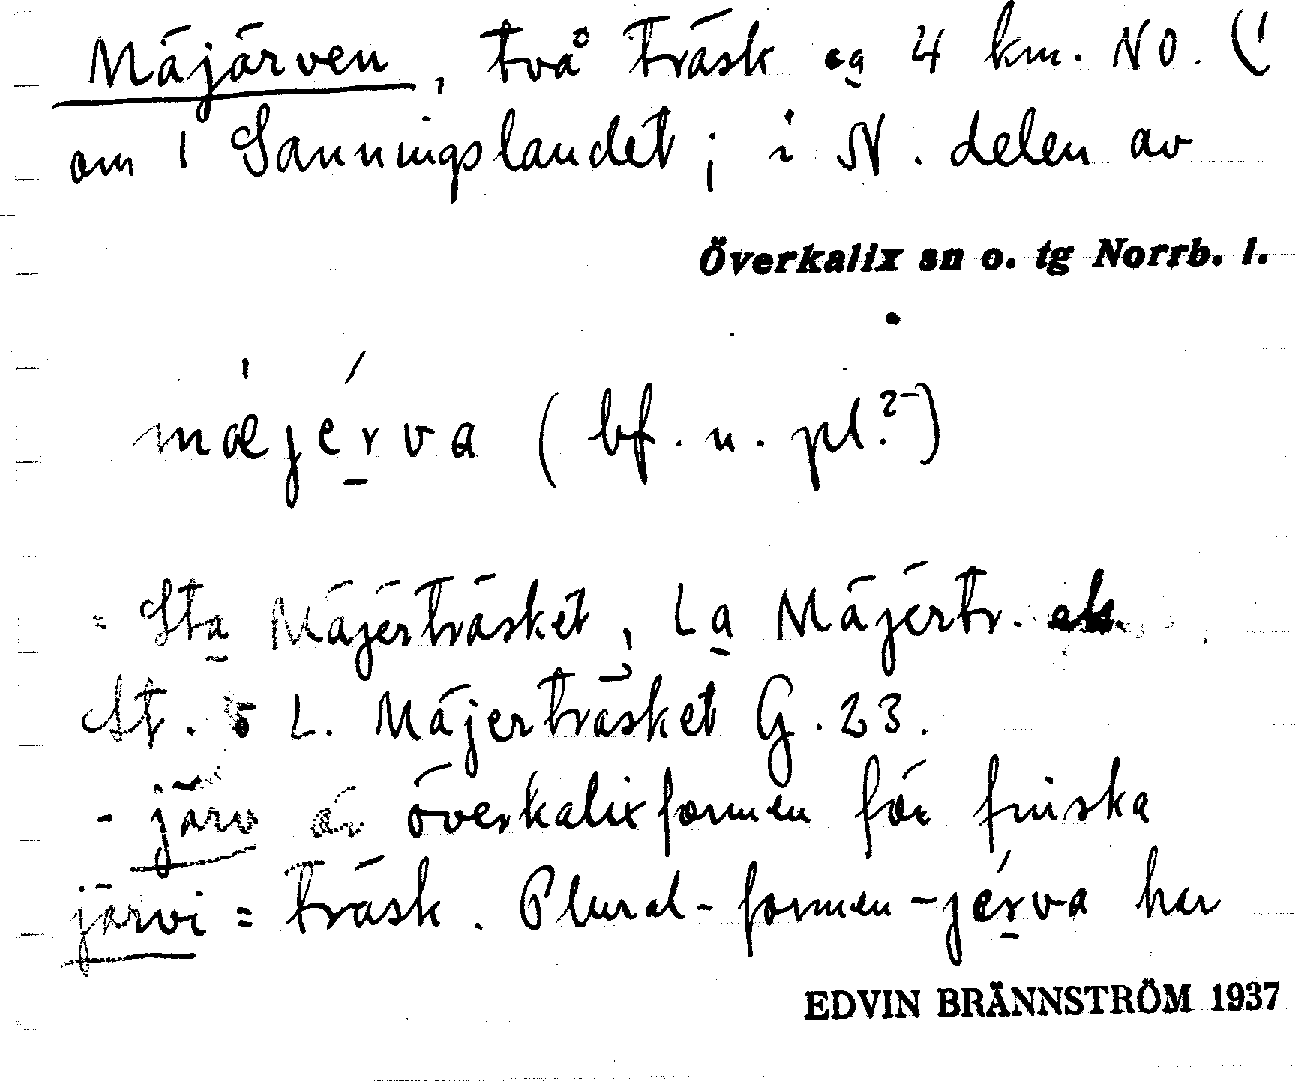 Mäjärven, två träsk ca 4 km. NO. (!
om | Sanningslandet; i N. delen av
Överkalix sn o. tg Norrb. l.
mæjérva (bf. n. pl.?)
= Sta Mäjerträsket, La Mäjertr. ek.
St. o L. Mäjerträsket G. 23.
- järv är överkalixformen för finska
järvi = träsk. Plural-formen -jérva har
EDVIN BRÄNNSTRÖM 1937